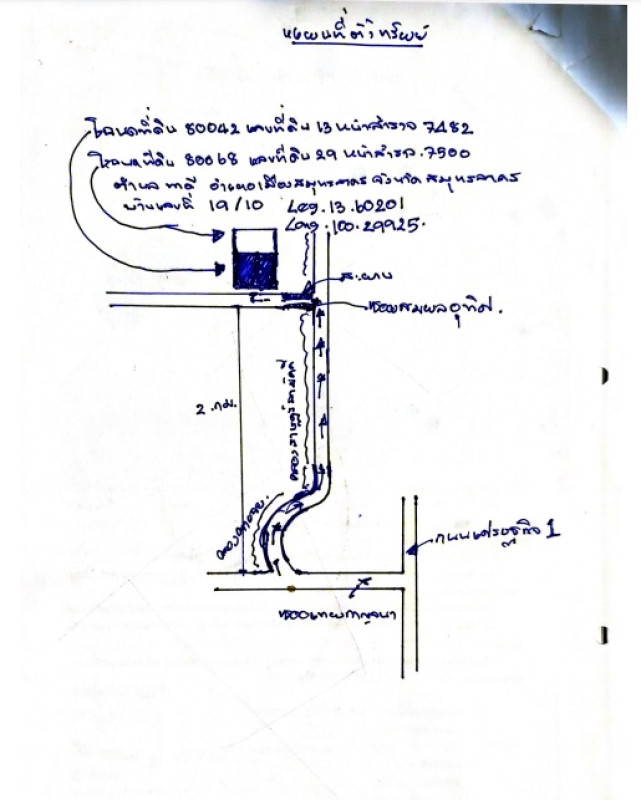 แผนที่ตั้งทรัพย์
โฉนดที่ดิน 80042 เลขที่ดิน 13 หน้าสำรวจ 7482
โฉนดที่ดิน 80068 เลขที่ดิน 29 หน้าสำรวจ 7500
ตำบล ท่าดี อำเภอเมืองสมุทรสาคร จังหวัด สมุทรสาคร
บ้านเลขที่ 19/10
13.60201
Long.100.29925
สะพาน
ซอยสมผลอุทิศ.
2.กม.
ถนนเศรษฐกิจ 1
ซอยเทพกาญจนา